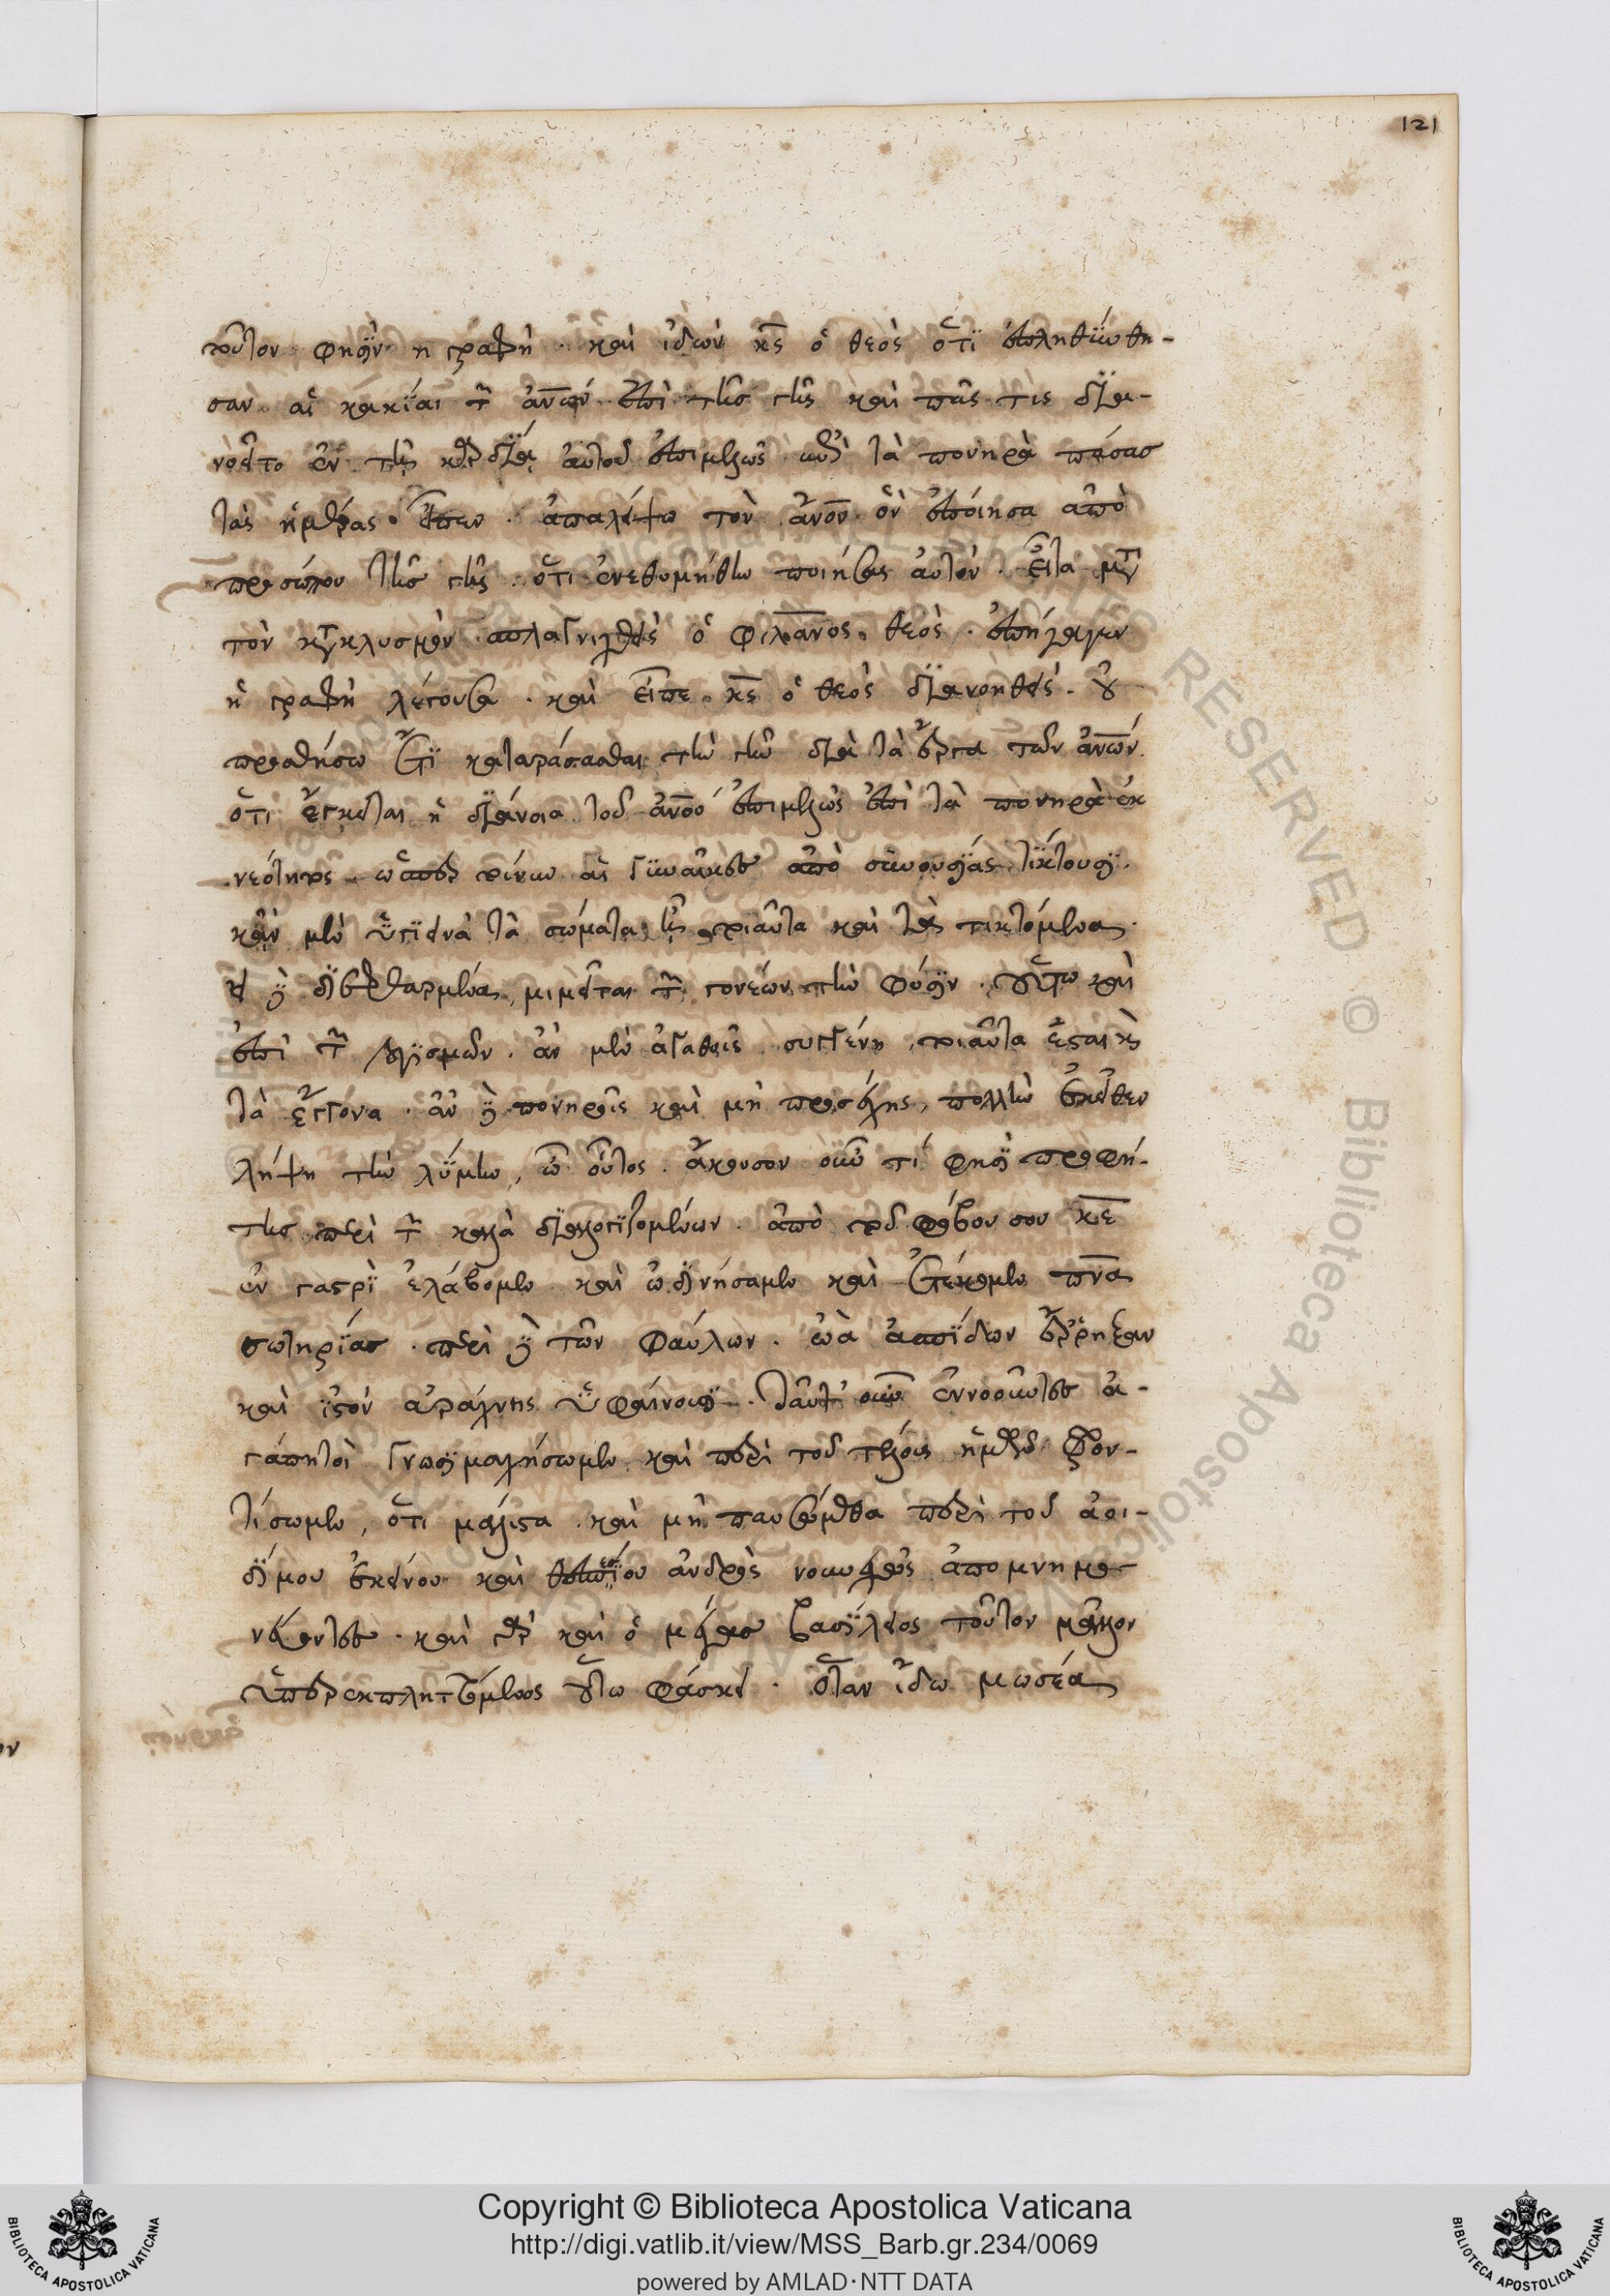 121
τοῦτον φησὶν ἡ γραφὴ. καὶ ἰδὼν κ̅ς̅ ὁ θεὸς ὅτι ἐπληθύνθη-
σαν αἱ κακίαι τῶν ἀν̅ων ἐπὶ τῆς γῆς καὶ πᾶς τις δια-
νοεῖτο ἐν τῇ καρδίᾳ αὐτοῦ ἐπιμελῶς ἐπὶ τὰ πονηρὰ πάσας
τὰς ἡμέρας. εἶπεν. ἀπαλείψω τὸν ἄν̅ον ὃν ἐποίησα ἀπὸ
προσώπου τῆς γῆς. ὅτι ἐνεθυμήθην ποιήσας αὐτόν. εἶτα μετὰ
τὸν κατακλυσμὸν σπλαγχνισθεὶς ὁ φιλάν̅ος θεὸς. ἐπήγαγεν
ἡ γραφὴ λέγουσα. καὶ εἶπε κ̅ς̅ ὁ θεὸς διανοηθεὶς. οὐ
προσθήσω ἔτι καταράσασθαι τὴν γῆν διὰ τὰ ἔργα τῶν ἀν̅ων.
ὅτι ἔγκειται ἡ διάνοια τοῦ ἀν̅ου ἐπιμελῶς ἐπὶ τὰ πονηρὰ ἐκ
νεότητος. ὥσπερ τοίνυν αἱ γυναῖκες ἀπὸ συνουσίας τίκτουσι.
κἂν μὲν ὑγιεινὰ τὰ σώματα ᾖ, τοιαῦτα καὶ τὰ τικτόμενα.
εἰ δὲ διεφθαρμένα, μιμεῖται τῶν γονέων τὴν φύσιν. οὕτω καὶ
ἐπὶ τῶν λογισμῶν. ἂν μὲν ἀγαθοῖς συγγένῃ, τοιαῦτα ἔσται καὶ
τὰ ἔγγονα. ἂν δὲ πονηροῖς καὶ μὴ προσέχῃς, πολλὴν ἐκεῖθεν
λήψῃ τὴν λύμην, ὦ οὗτος. ἄκουσον οὖν τί φησὶ προφή-
της περὶ τῶν καλὰ διαλογιζομένων. ἀπὸ τοῦ φόβου σου κ̅ε̅
ἐν γαστρὶ ἐλάβομεν καὶ ὠδινήσαμεν καὶ ἐτέκομεν πν̅α
σωτηρίας. περὶ δὲ τῶν φαύλων. ὠὰ ἀσπίδων ἔρρηξαν
καὶ ἱστὸν ἀράχνης ὑφαίνουσι. ταῦτ' οὖν ἐννοοῦντες ἀ-
γαπητοὶ γνωσιμαχήσωμεν καὶ περὶ τοῦ τέλους ἡμῶν φρον-
τίσωμεν, ὅτι μάλιστα. καὶ μὴ παυσώμεθα περὶ τοῦ ἀοι-
δίμου ἐκείνου καὶ θεσπεσίου ἀνδρὸς νουνεχῶς ἀπομνημο-
νεύοντες. καὶ γὰρ καὶ ὁ μέγας βασίλειος τοῦτον μᾶλλον
ὑπερεκπληττόμενος οὕτω φάσκει. ὅταν ἴδω μωσέα
Copyright © Biblioteca Apostolica Vaticana
http://digi.vatlib.it/view/MSS_Barb.gr.234/0069
powered by AMLAD·NTT DATA